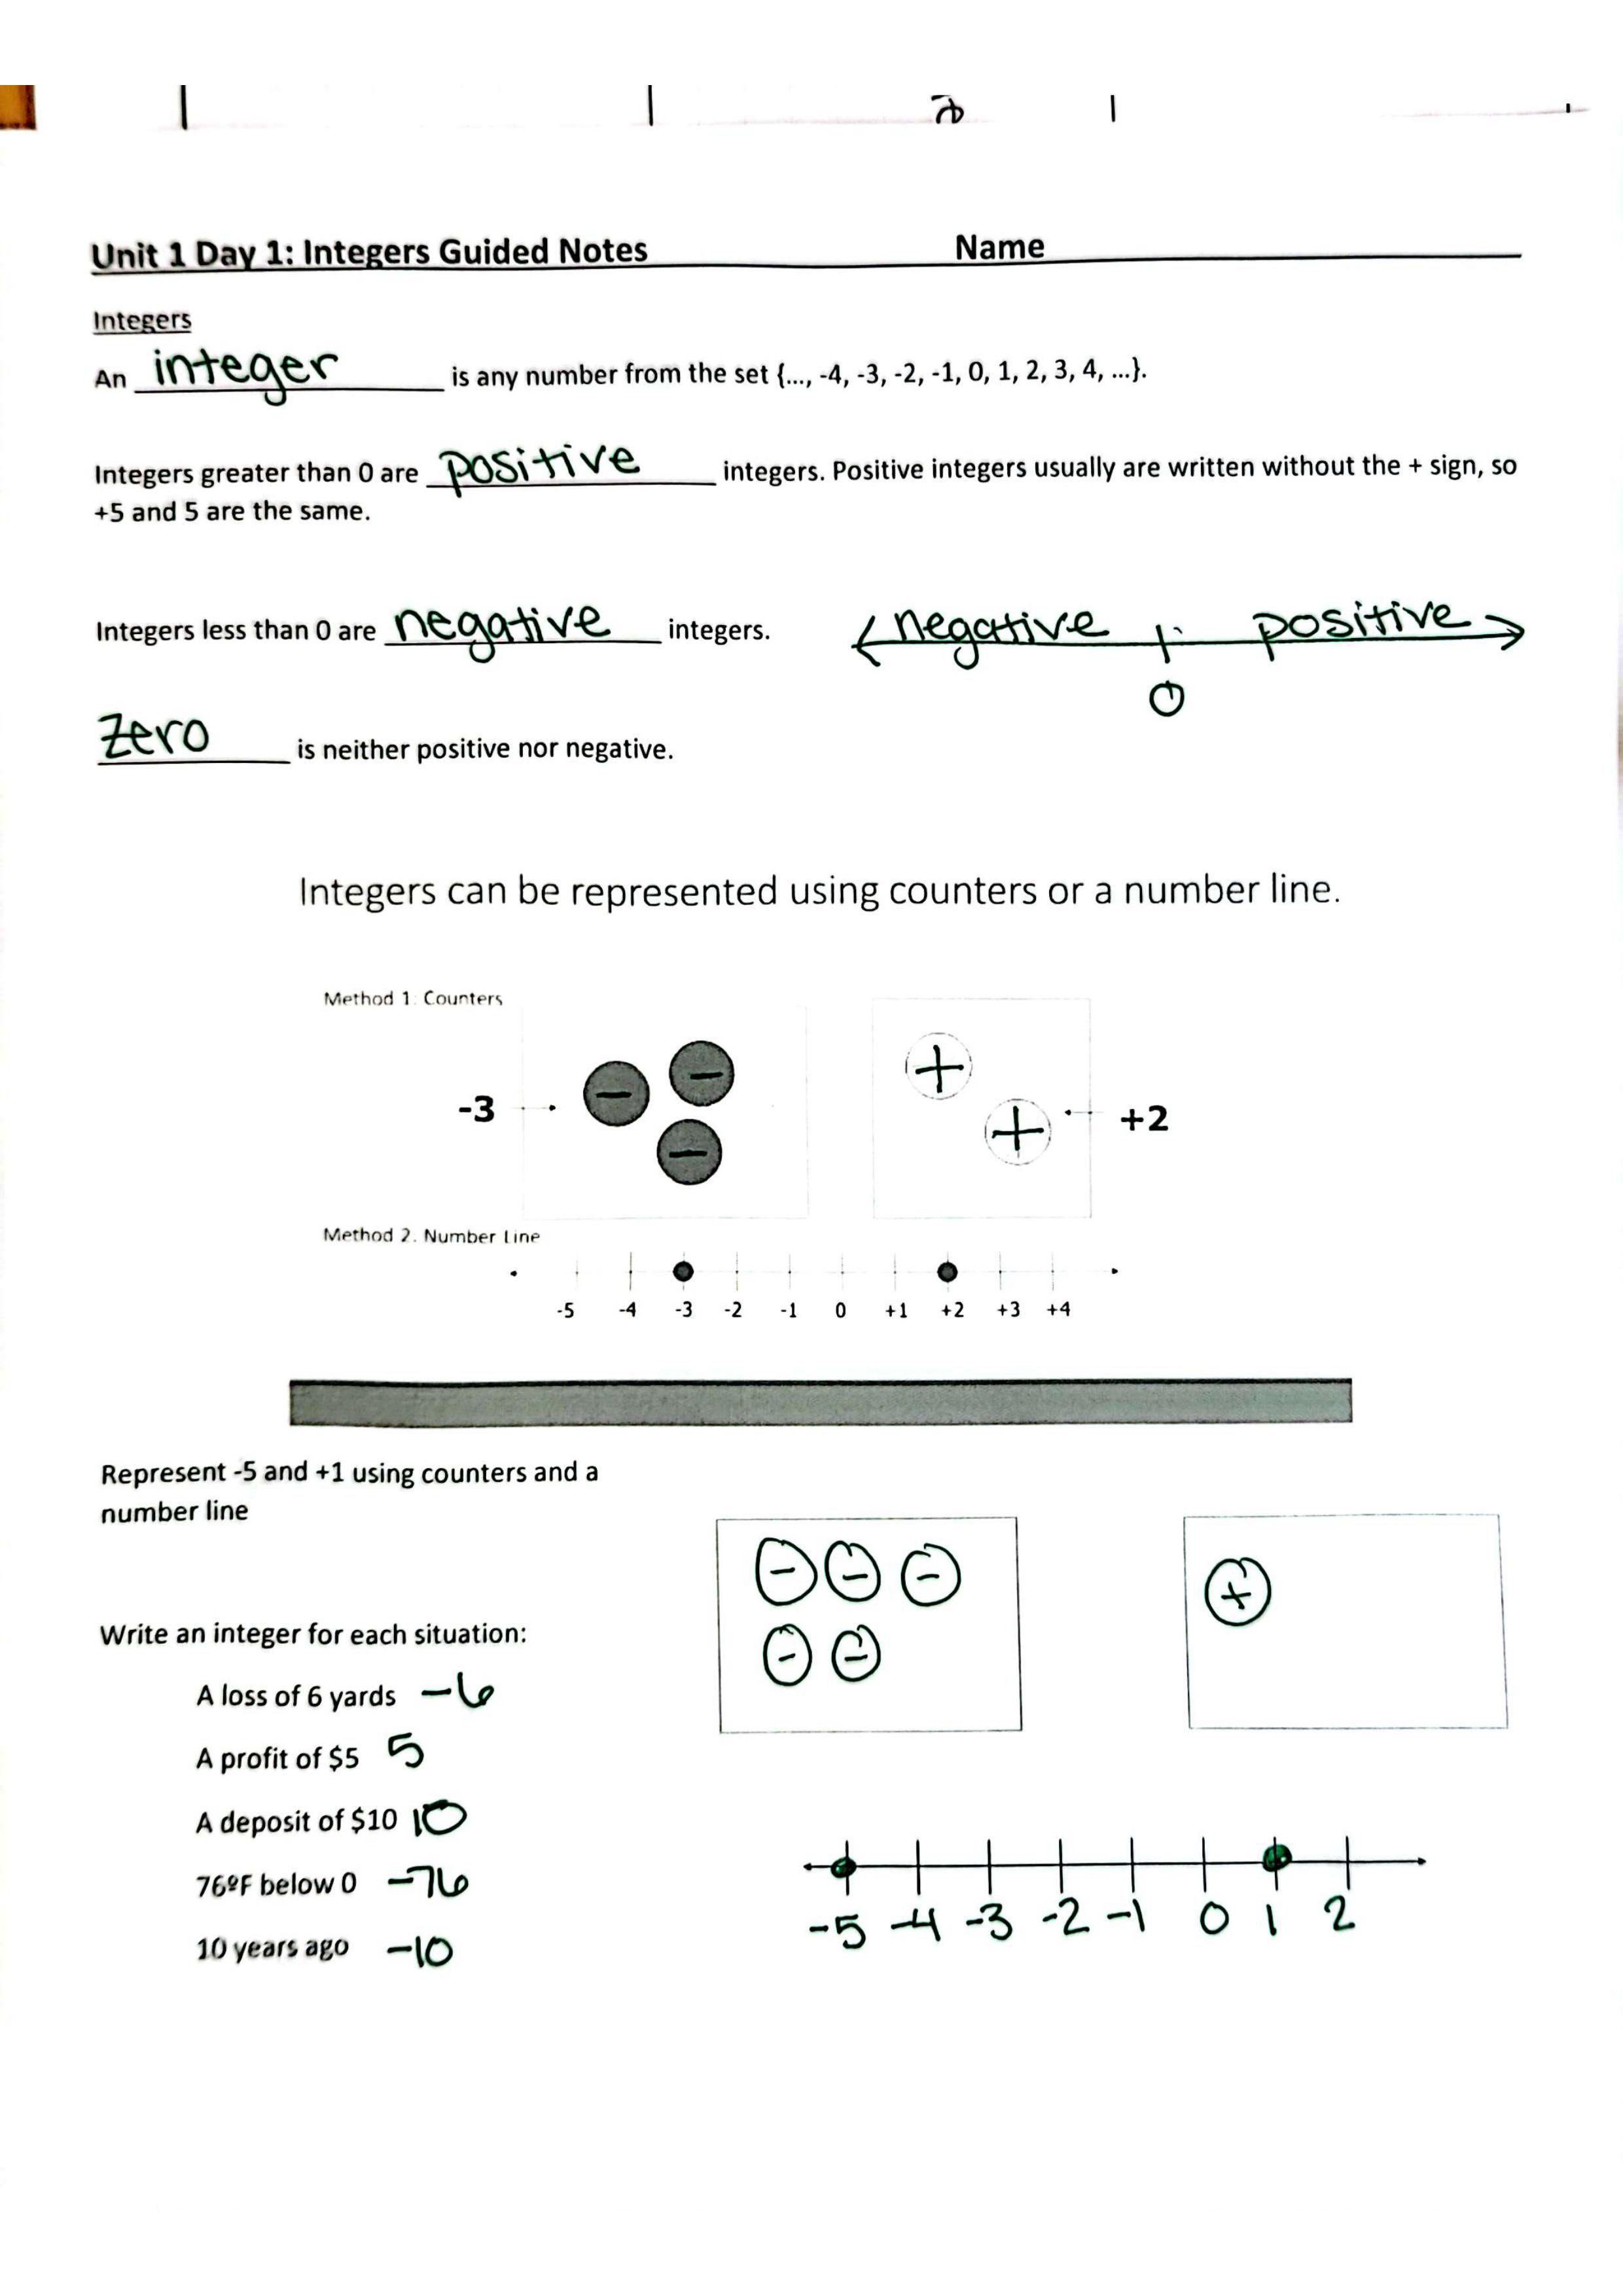 Unit 1 Day 1: Integers Guided Notes Name
Integers
An integer is any number from the set {..., -4, -3, -2, -1, 0, 1, 2, 3, 4, ...}.
Integers greater than 0 are positive integers. Positive integers usually are written without the + sign, so
+5 and 5 are the same.
Integers less than 0 are negative integers.
negative positive
0
Zero is neither positive nor negative.
Integers can be represented using counters or a number line.
Method 1: Counters
- - -
+ +
-3
+2
Method 2. Number Line
-5 -4 -3 -2 -1 0 +1 +2 +3 +4
Represent -5 and +1 using counters and a
number line
- - -
- -
+
Write an integer for each situation:
A loss of 6 yards -6
A profit of $5 5
A deposit of $10 10
76ºF below 0 -76
10 years ago -10
-5 -4 -3 -2 -1 0 1 2